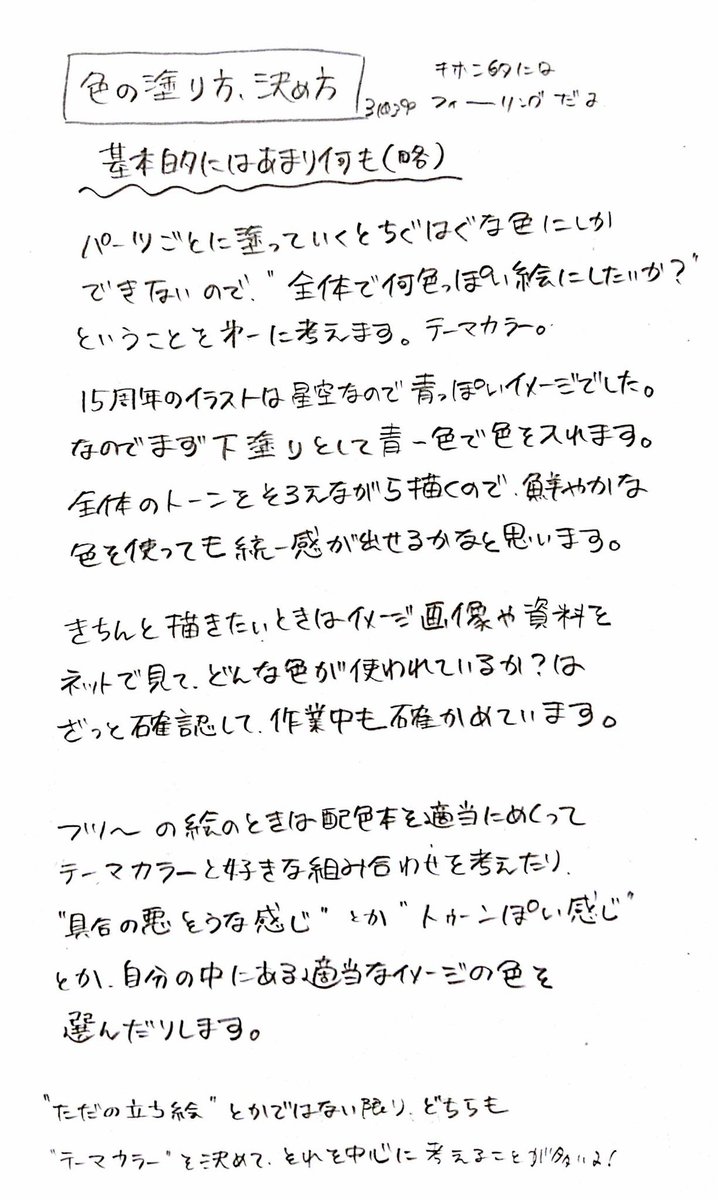 色の塗り方、決め方
キホン的には
フィーリングだよ
基本的にはあまり何も(略)
パーツごとに塗っていくとちぐはぐな色にしか
できないので、"全体で何色っぽい絵にしたいか?"
ということを第一に考えます。テーマカラー。
15周年のイラストは星空なので青っぽいイメージでした。
なのでまず下塗りとして青一色で色を入れます。
全体のトーンをそろえながら描くので、鮮やかな
色を使っても統一感が出せるかなと思います。
きちんと描きたいときはイメージ画像や資料を
ネットで見て、どんな色が使われているか?は
ざっと確認して、作業中も確かめています。
フツ〜の絵のときは配色本を適当にめくって
テーマカラーと好きな組み合わせを考えたり、
"具合の悪そうな感じ"とか"トゥーンぽい感じ"
とか、自分の中にある適当なイメージの色を
選んだりします。
"ただの立ち絵"とかではない限り、どちらも
"テーマカラー"を決めて、それを中心に考えることが多いよ!